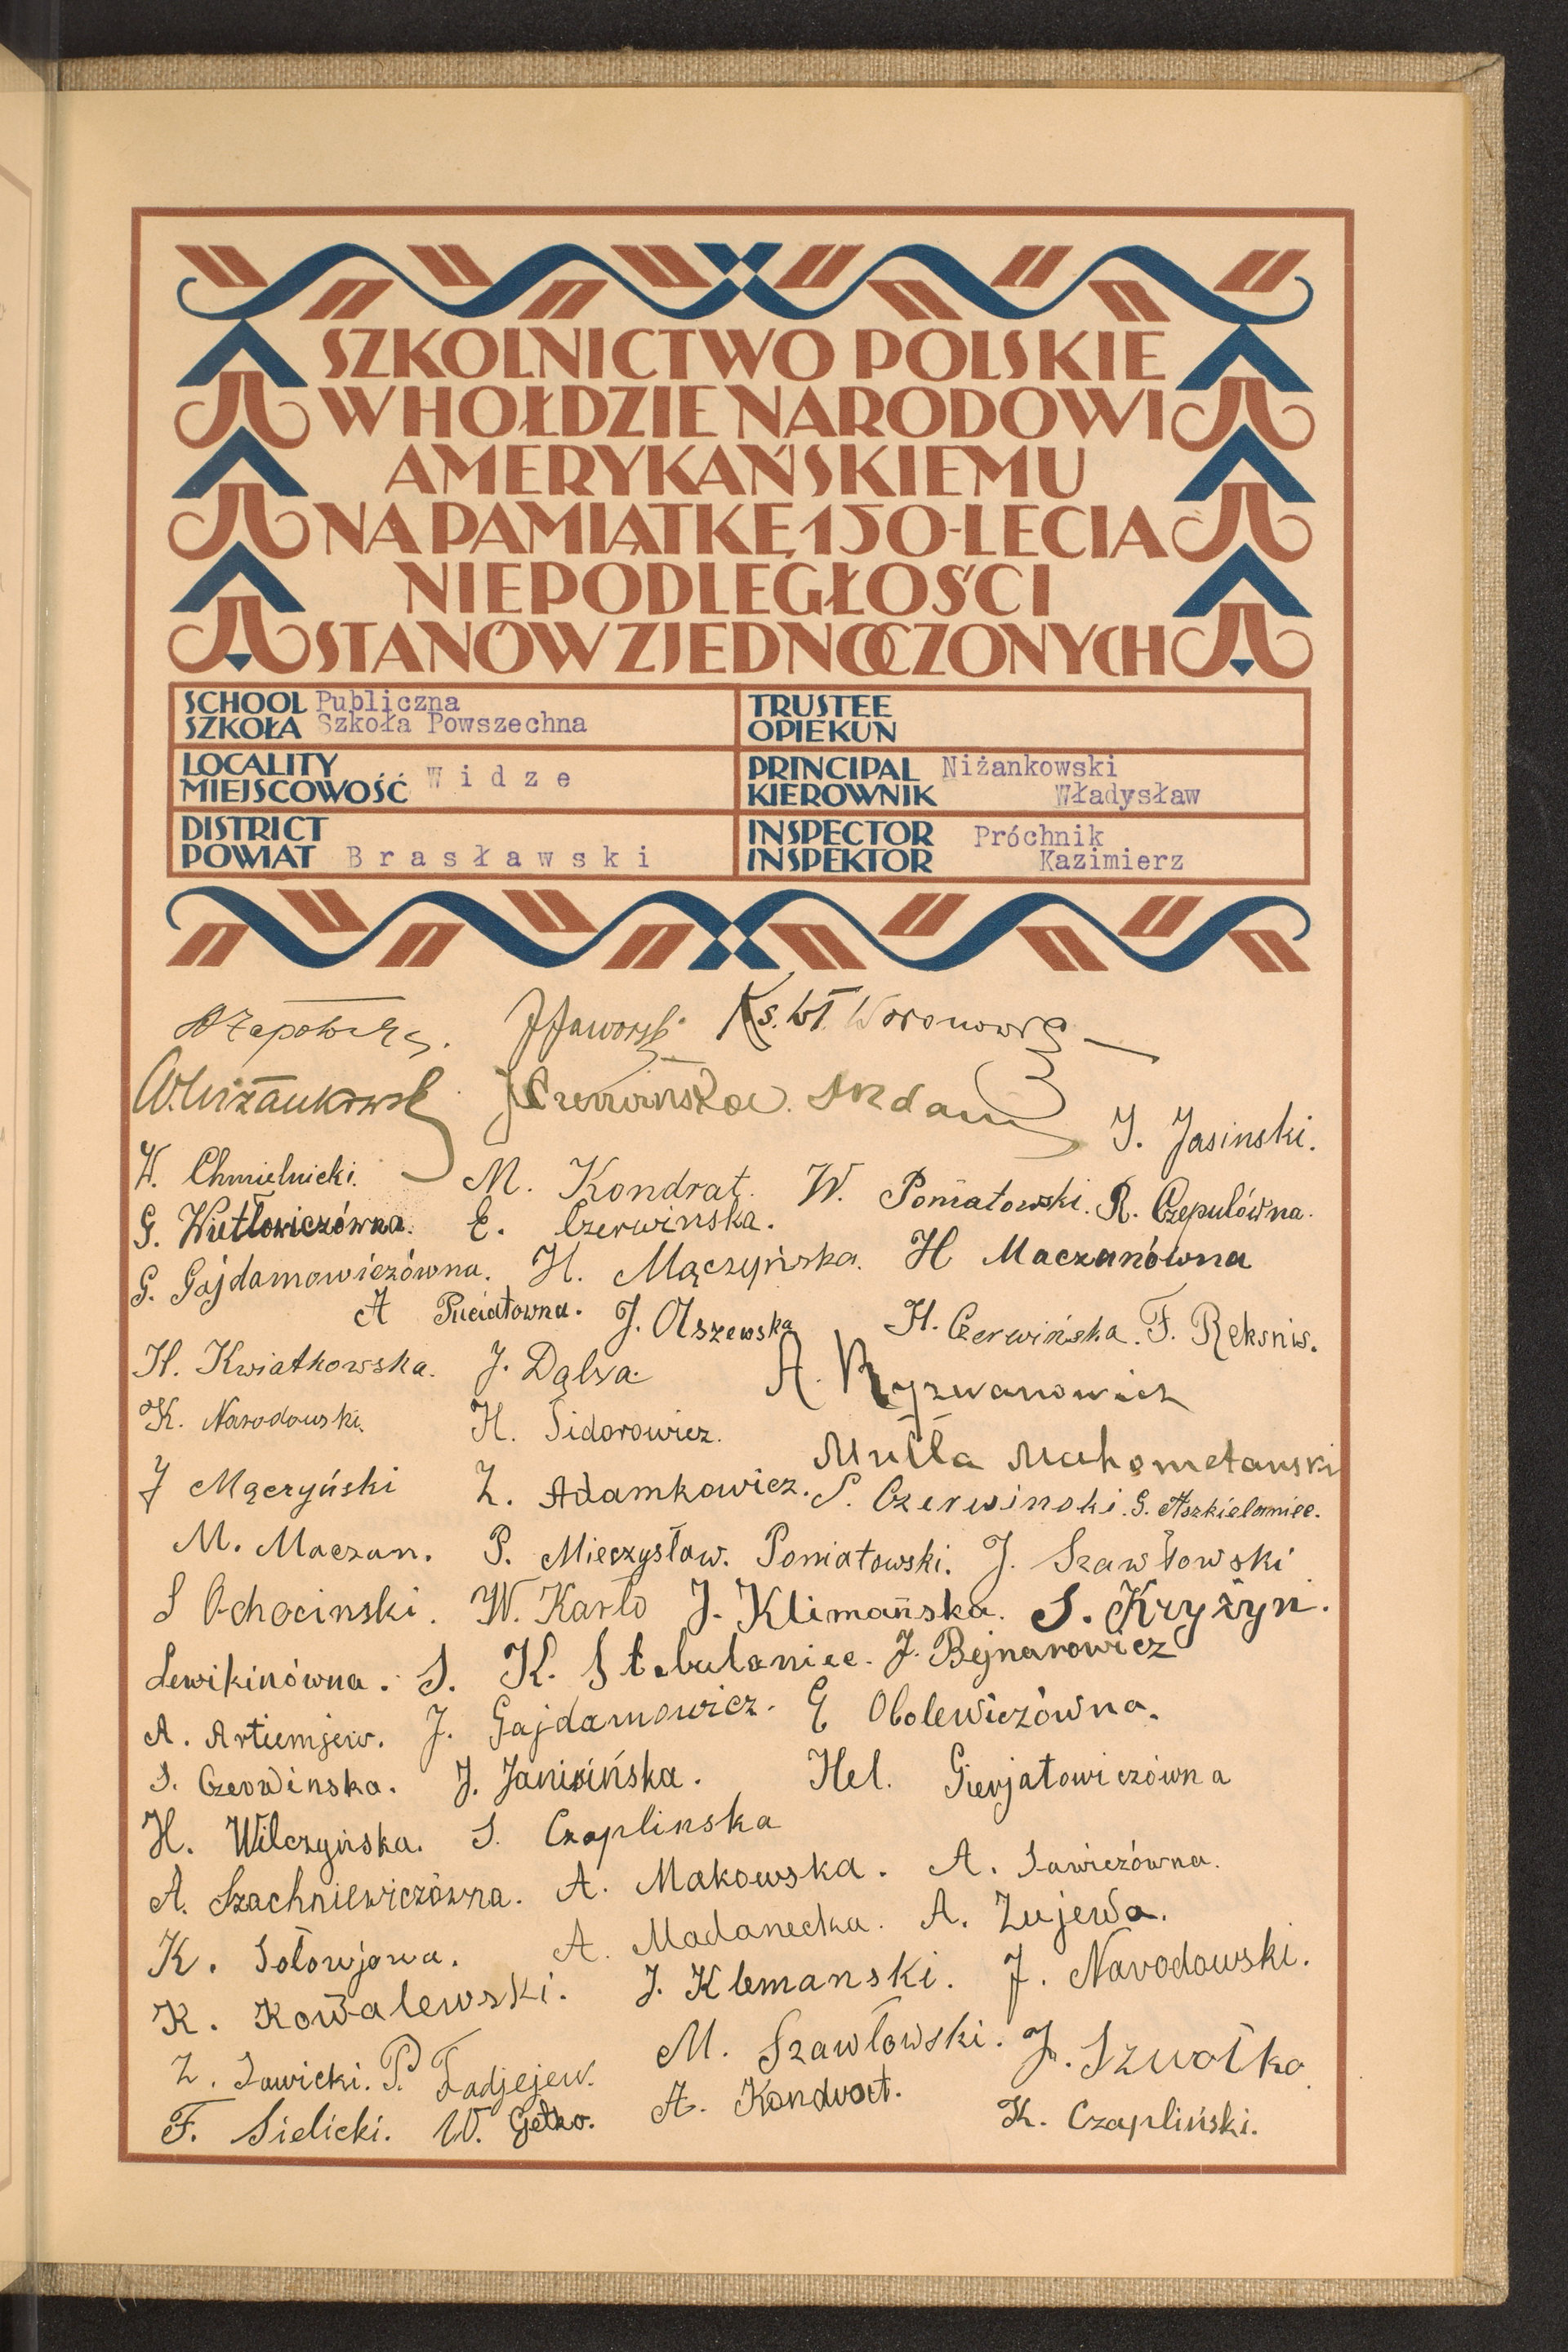 SZKOLNICTWO POLSKIE
W HOŁDZIE NARODOWI
AMERYKAŃSKIEMU
NA PAMIĄTKĘ 150-LECIA
NIEPODLEGŁOŚCI
STANÓW ZJEDNOCZONYCH
SCHOOL SZKOŁA Publiczna Szkoła Powszechna
TRUSTEE OPIEKUN
LOCALITY MIEJSCOWOŚĆ Widze
PRINCIPAL KIEROWNIK Niżankowski Władysław
DISTRICT POWIAT Brasławski
INSPECTOR INSPEKTOR Próchnik Kazimierz
Ks. Wł.
W. Niżankowski
J. Jasinski.
W. Chmielnicki. M. Kondrat. W. Poniatowski. R. Czepulówna.
G. Wietłowiczówna. E. Czerwinska.
G. Gajdamowiczówna. H. Mączyńska. H Maczanówna
A Puciatowna. J. Olszewska H. Czerwińska. F. Rękśnis.
H. Kwiatkowska. J. Dąlwa. A. Ryzwanowicz
K. Narodowski. H. Sidorowicz. Mułła Mahometański
J Mączyński Z. Adamkowicz. S. Czerwinski. G. Aszkielaniec.
M. Maczan. P. Mieczysław. Poniatowski. J. Szawłowski
S Ochocinski. W. Karło J. Klimańska. S. Kryżyn.
Lewikinówna. S. K. Stabulaniec. J. Bejnarowicz
A. Artiemjew. J. Gajdamowicz. G Obolewiczówna.
S. Czerwinska. J. Janisińska. Hel. Gierjatowiczówna
H. Wilczyńska. S. Czaplinska
A. Szachniewiczówna. A. Makowska. A. Sawiczówna.
K. Sołowjowa. A. Madanecka. A. Zujewa.
K. Kowalewski. J. Klemanski. J. Narodowski.
Z. Sawicki. P. Fadjejew. M. Szawłowski. J. Szwołko
F. Sielicki. W. Getko. A. Kondrat. K. Czapliński.